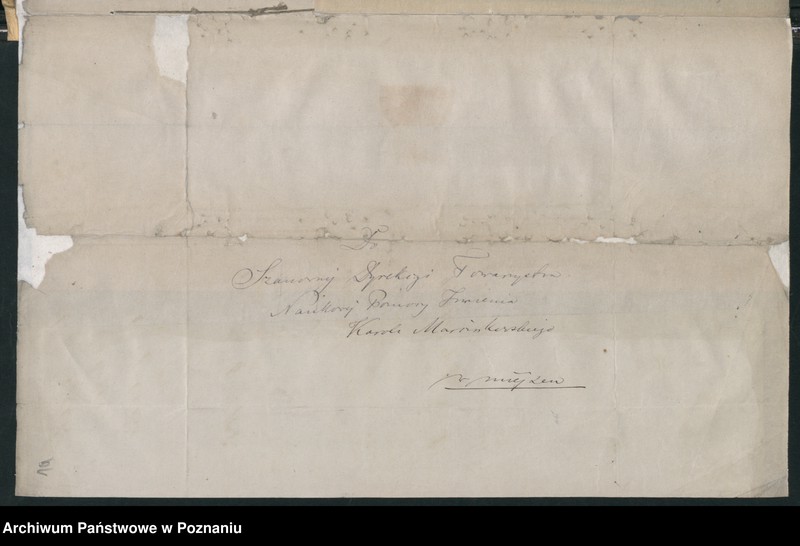 Do
Szanownej Dyrekcyi Towarzystwa
Naukowej Pomocy Imienia
Karola Marcinkowskiego
w miejscu
Archiwum Państwowe w Poznaniu